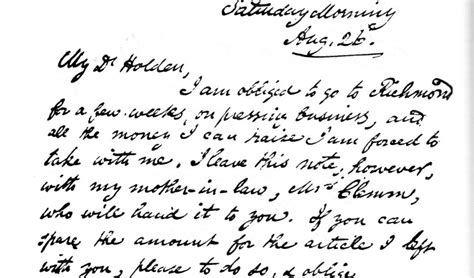 Saturday Morning
Aug. 26.
My Dr Holden,
I am obliged to go to Richmond
for a few weeks, on pressing business, and
all the money I can raise I am forced to
take with me. I leave this note, however,
with my mother-in-law, Mrs Clemm,
who will hand it to you. If you can
spare the amount for the article I left
with you, please to do so, & oblige